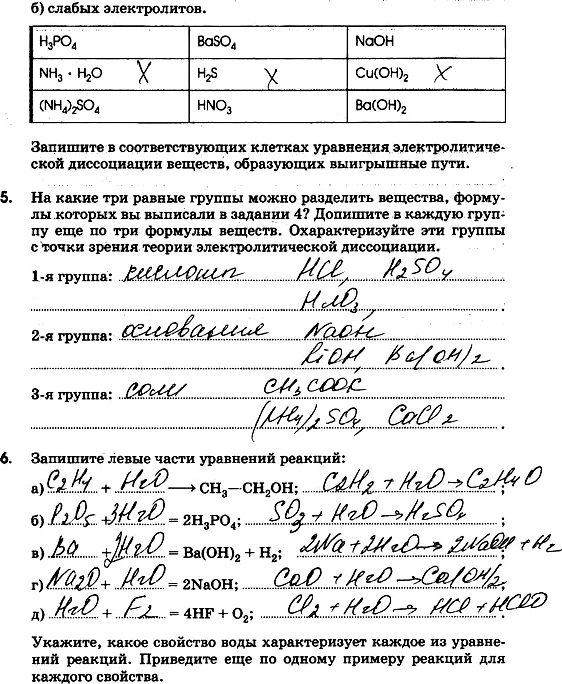 б) слабых электролитов.
H₃PO₄ BaSO₄ NaOH
NH₃ · H₂O X H₂S X Cu(OH)₂ X
(NH₄)₂SO₄ HNO₃ Ba(OH)₂
Запишите в соответствующих клетках уравнения электролитиче-
ской диссоциации веществ, образующих выигрышные пути.
5. На какие три равные группы можно разделить вещества, форму-
лы которых вы выписали в задании 4? Допишите в каждую груп-
пу еще по три формулы веществ. Охарактеризуйте эти группы
с точки зрения теории электролитической диссоциации.
1-я группа: кислоты HCl, H₂SO₄
HNO₃
2-я группа: основания NaOH
LiOH, Ba(OH)₂
3-я группа: соли CH₃COOK
(NH₄)₂SO₄ CaCl₂
6. Запишите левые части уравнений реакций:
а) C₂H₄ + H₂O → CH₃—CH₂OH; C₂H₂ + H₂O → C₂H₄O
б) P₂O₅ + 3H₂O = 2H₃PO₄; SO₃ + H₂O → H₂SO₄ ;
в) Ba + 2H₂O = Ba(OH)₂ + H₂; 2Na + 2H₂O → 2NaOH + H₂
г) Na₂O + H₂O = 2NaOH; CaO + H₂O → Ca(OH)₂
д) H₂O + F₂ = 4HF + O₂; Cl₂ + H₂O → HCl + HClO
Укажите, какое свойство воды характеризует каждое из уравне-
ний реакций. Приведите еще по одному примеру реакций для
каждого свойства.